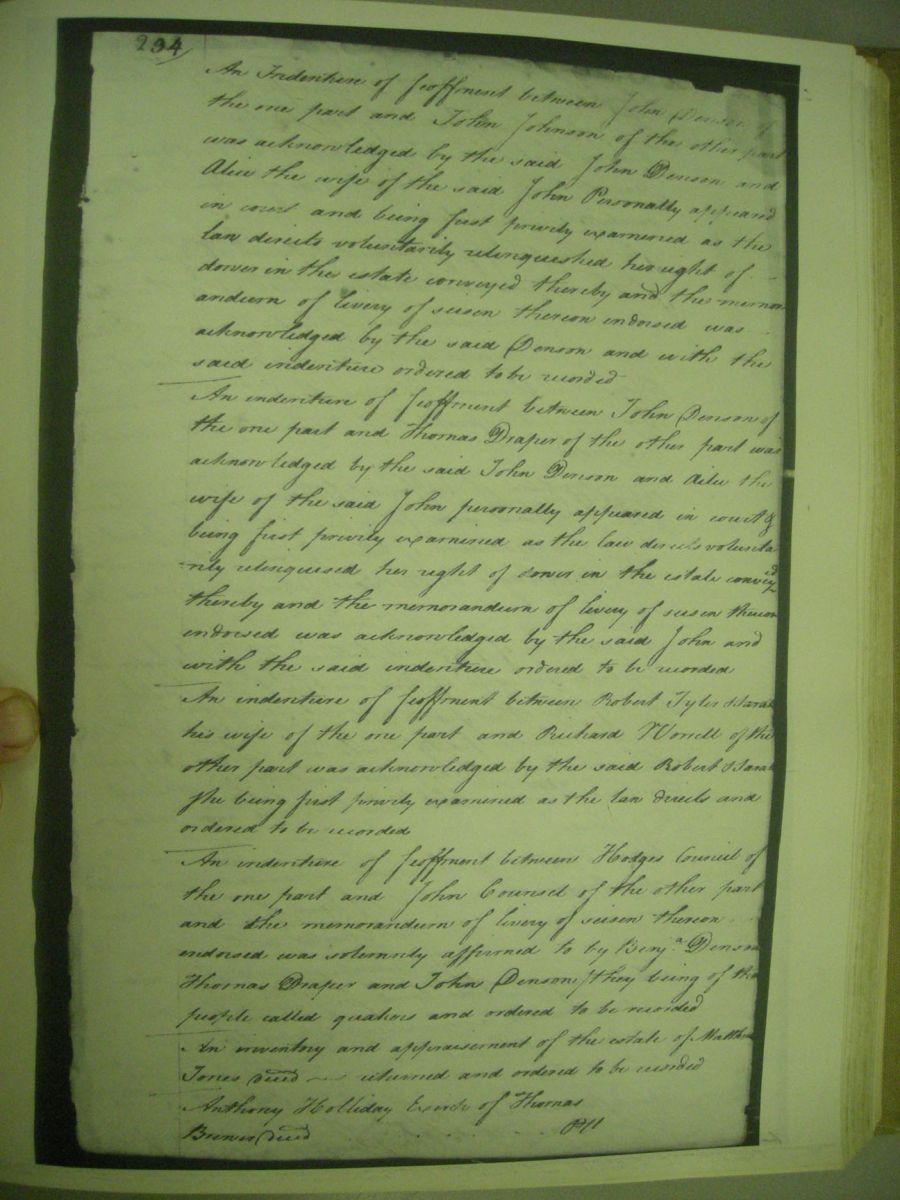 234
An Indenture of feoffment between John Denson of
the one part and John Johnson of the other part
was acknowledged by the said John Denson and
Alice the wife of the said John Personally appeared
in court and being first privily examined as the
law directs voluntarily relinqueshed her right of
dower in the estate conveyed thereby and the memor
andum of livery of seisen thereon indorsed was
acknowledged by the said Denson and with the
said indenture ordered to be recorded
An indenture of feoffment between John Denson of
the one part and Thomas Draper of the other part was
acknowledged by the said John Denson and Alice the
wife of the said John personally appeared in court &
being first privily examined as the law directs volunta
rily relinquised her right of dower in the estate convey'd
thereby and the memorandum of livery of seisen thereon
indorsed was acknowledged by the said John and
with the said indenture ordered to be recorded
An indenture of feoffment between Robert Tyler & Sarah
his wife of the one part and Richard Worrell of the
other part was acknowledged by the said Robert & Sarah
she being first privily examined as the law directs and
ordered to be recorded
An indenture of feoffment between Hodges Council of
the one part and John Counsel of the other part
and the memorandum of livery of seisen thereon
endorsed was solemnly affirmed to by Benja. Denson
Thomas Draper and John Denson /they being of the
people called quakers and ordered to be recorded
An inventory and appraisement of the estate of Matthew
Jones decd returned and ordered to be recorded
Anthony Holliday Exectr of Thomas
Brewer decd Plt